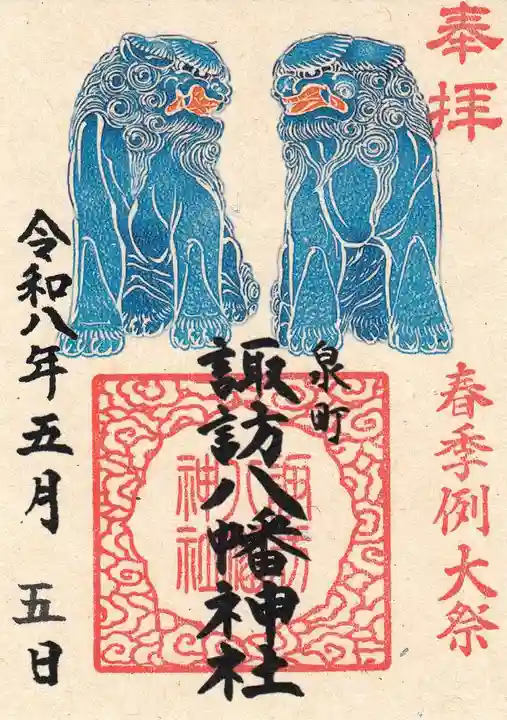 奉拝
春季例大祭
泉町
諏訪八幡神社
諏訪
八幡
神社
令和八年五月 五日